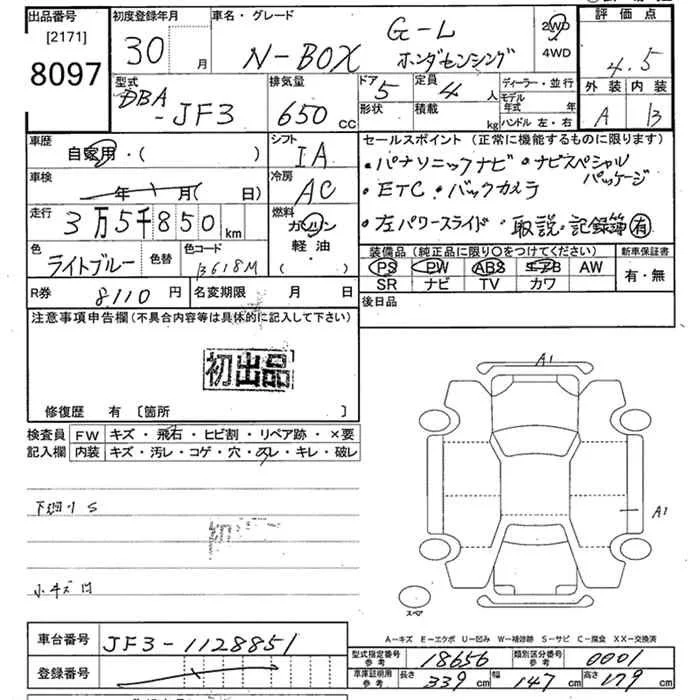 出品番号 [2171] 8097
初度登録年月 30 月
車名・グレード N-BOX G-L ホンダセンシング
2WD 4WD
評価点 4.5
外装 内装
A B
型式 DBA-JF3
排気量 650 CC
ドア 5 定員 4 人
形状 積載 kg
ディーラー・並行
モデル年式 年
ハンドル 左・右
車歴 自家用・( )
シフト IA
車検 年 月( 日)
冷房 AC
走行 3万5千850 km
燃料 ガソリン 軽油・( )
色 ライトブルー 色替
色コード B618M
セールスポイント (正常に機能するものに限ります)
・パナソニックナビ・ナビスペシャルパッケージ
・ETC・バックカメラ
・左パワースライド・取説・記録簿 有
装備品 (純正品に限り○をつけてください) 新車保証書
PS PW ABS エアB AW 有・無
SR ナビ TV カワ
R券 8110 円 名変期限 月 日
後日品
注意事項申告欄 (不具合内容等は具体的に記入して下さい)
初出品
修復歴 有 [箇所 ]
検査員 FW キズ・飛石・ヒビ割・リペア跡・×要
記入欄 内装 キズ・汚レ・コゲ・穴・スレ・キレ・破レ
下廻り S
小キズ凹
A1
A1
スペア
A-キズ E-エクボ U-凹み W-補修跡 S-サビ C-腐食 XX-交換済
車台番号 JF3-1128851
登録番号
型式指定番号 参考 18656 類別区分番号 参考 0001
車庫証明用 参考 長さ 339 cm 幅 147 cm 高さ 179 cm